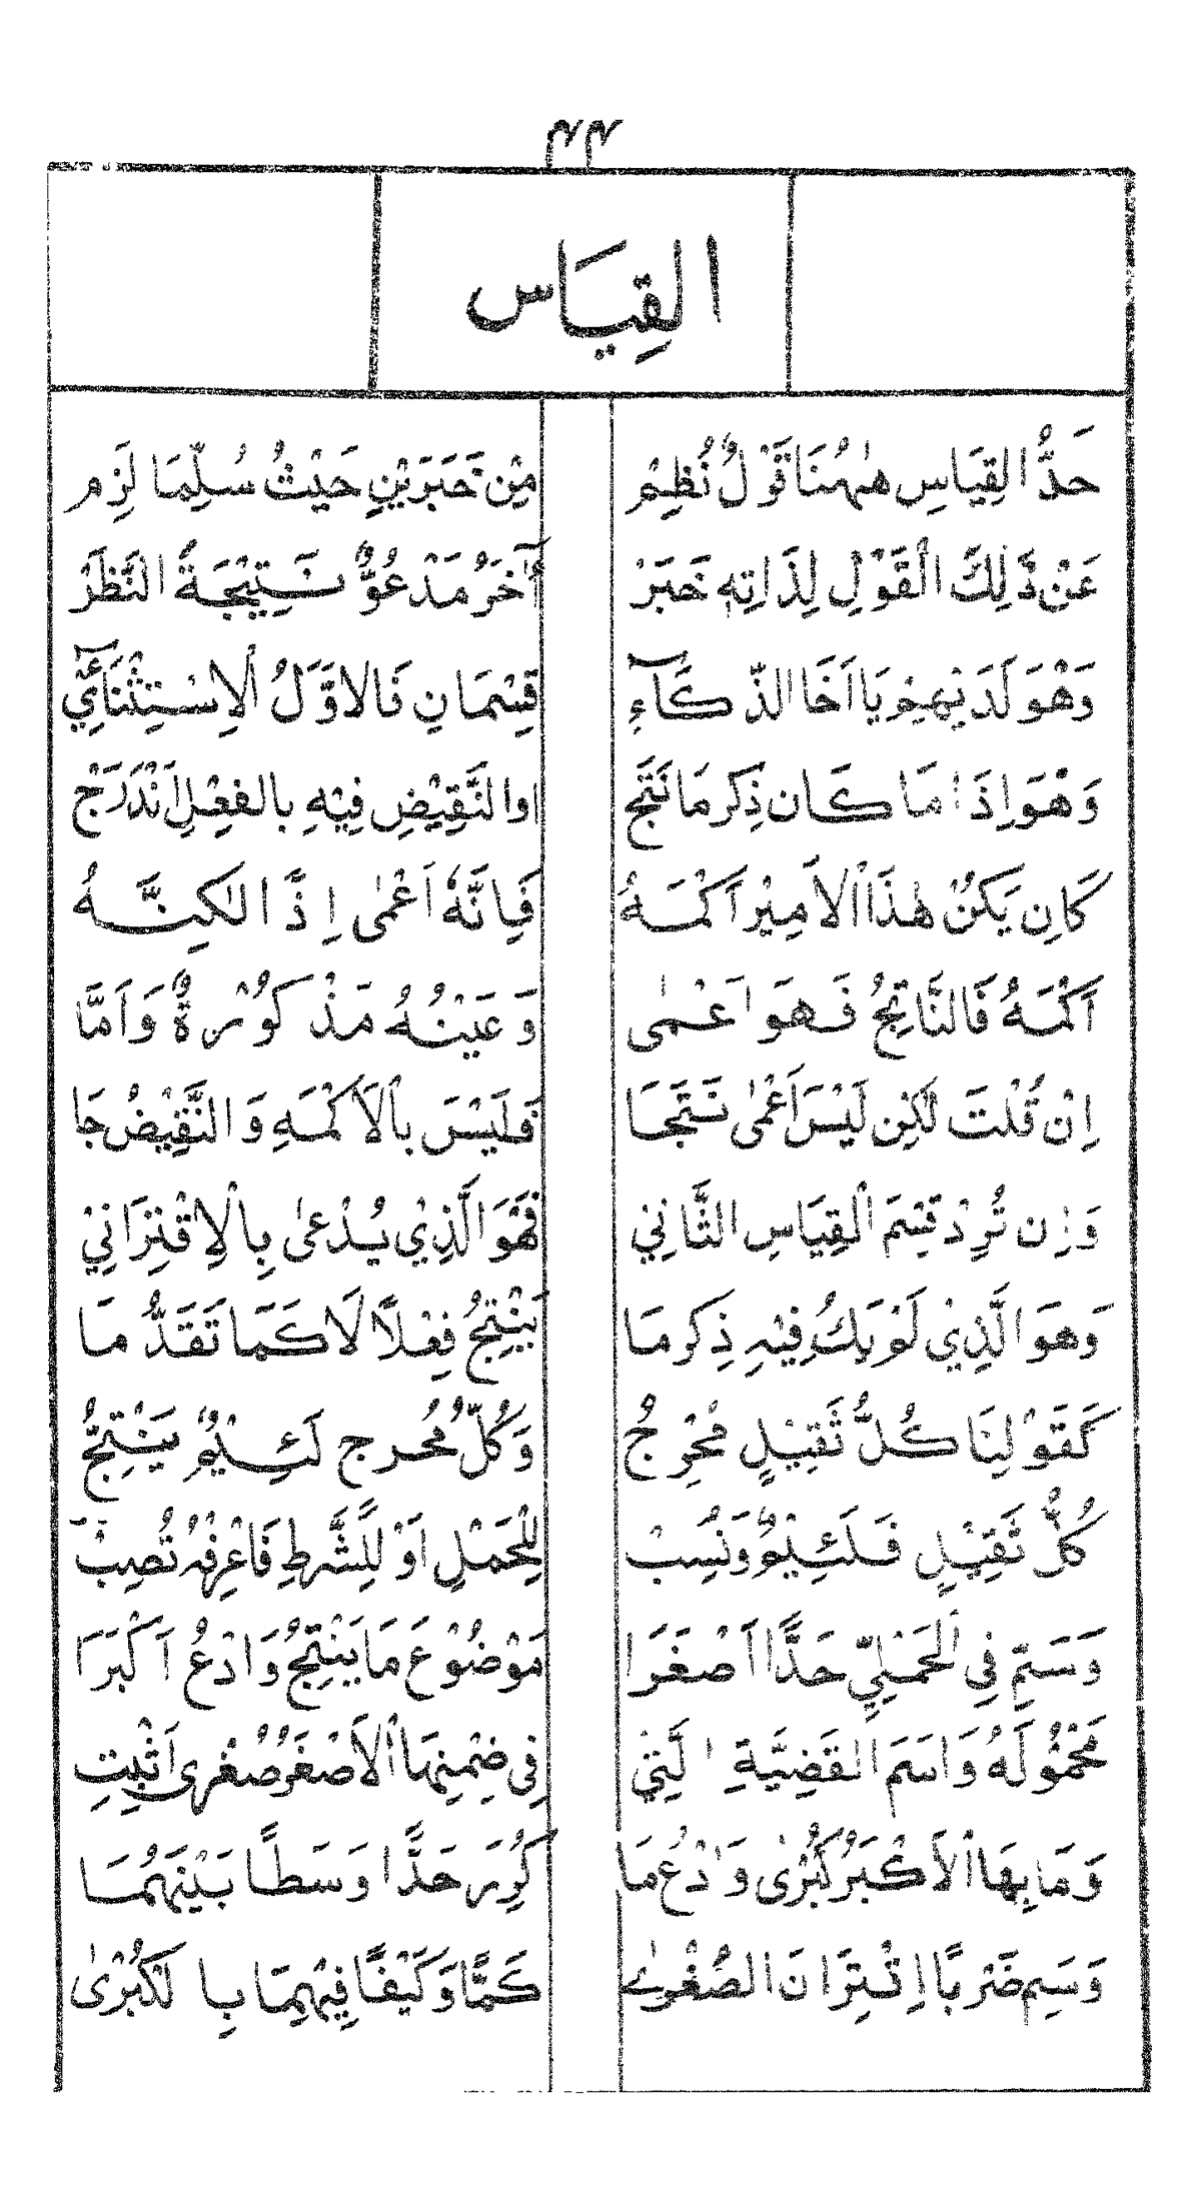 ٤٤
القِيَاس
حَدُّ القِيَاسِ هٰهُنَا قَوْلٌ نُظِمْ مِنْ خَبَرَيْنِ حَيْثُ سُلِّمَا لَزِم
عَنْ ذَلِكَ الْقَوْلِ لِذَاتِهِ خَبَرْ آخَرُ مَدْعُوٌّ نَتِيْجَةَ النَّظَرْ
وَهْوَ لَدَيْهِمْ يَا اَخَا الذَّكَآءِ قِسْمَانِ فَالاَوَّلُ الْاِسْتِثْنَائِيّ
وَهْوَ اِذَا مَا كَان ذِكر مَا نَتَج اوالنَّقِيْضِ فِيْهِ بالفعِْلِ اَنْدَرَجْ
كَاِن يَكُنْ هٰذَا الْاَمِيْر اَكْمَهُ فَاِنَّهُ اَعْمٰى اِذًا لٰكِنَّهُ
اَكْمَهُ فَالنَّاتِجُ فَهوَ اَعْمٰى وَعَيْنُهُ مَذْكُوْرَةٌ وَاَمَّا
اِنْ قُلْتَ لٰكِنْ لَيْسَ اَعْمٰى نَتَجَا فَلَيْسَ بِالْاَكْمَهِ وَالنَّقِيْضُ جَا
وَاِن تُرِدْ قِسْمَ الْقِيَاسِ الثَّانِي فَهْوَ الَّذِيْ يُدْعٰى بِالْاِقْتِرَانِيْ
وَهوَ الَّذِيْ لَمْ يَكُ فِيْهِ ذِكر مَا يَنْتِجُ فِعْلًا لَا كَمَا تَقَدَّمَا
كَقَوْلِنَا كُلُّ ثَقِيْلٍ مُحْرِجُ وَكُلُّ مُحرج لَئِيْمٌ يَنْتِجُ
كُلُّ ثَقِيْلٍ فَلَئِيْمٌ وَنُسِبْ لِلْحَمْلِ اَوْ لِلشَّرطِ فَاعْرِفْهُ تُصِبْ
وَسَمِّ فِي الْحَمْلِيِّ حَدًّا اَصْغَرَا مَوْضُوْعَ مَا يَنْتِجُ وَادْعُ اَكْبَرَا
مَحْمُوْلَهُ وَاسْمَ الْقَضِيَّةِ الَّتِيْ فِي ضِمْنِهَا الْاَصْغَرُ صُغْرى اَثْبِتِ
وَمَا بِهَا الْاَكْبَرُ كُبْرٰى وَادْعُ مَا كُرِّرَ حَدًّا وَسَطًا بَيْنَهُمَا
وَسِم ضَربًا اِقْتِرَانَ الصُّغْرٰى كَمًّا وَكَيْفًا فِيْهِمَا بِالْكُبْرٰى